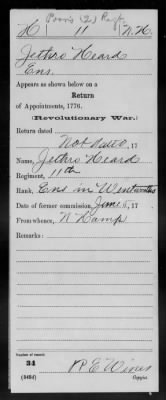 Poor's (2) Regt.
H 11 N.H.
Jethro Heard
Ens.
Appears as shown below on a
Return
of Appointments, 1776.
(Revolutionary War.)
Return dated
Not dated, 17
Name, Jethro Heard
Regiment, 11th
Rank, Ens in
Date of former commission, June 1, 17
From whence, N Hamp
Remarks:
Number of record:
34
(543d)
R E
Copyist.